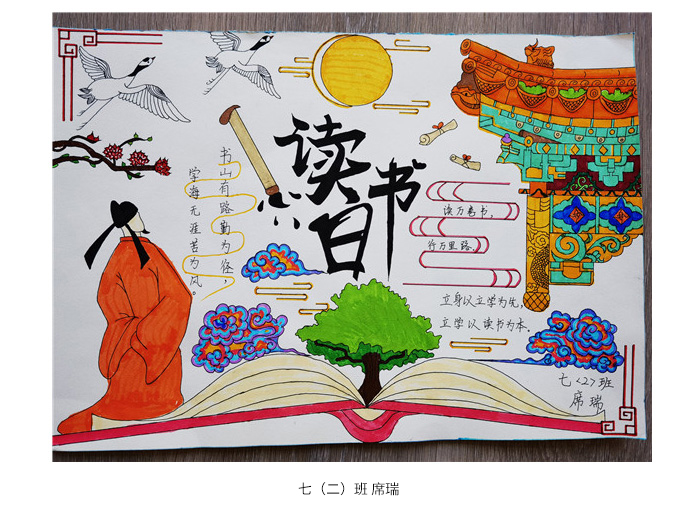 读书日
书山有路勤为径，
学海无涯苦为风。
读万卷书，
行万里路。
立身以立学为先，
立学以读书为本。
七<2>班
席瑞
七（二）班 席瑞